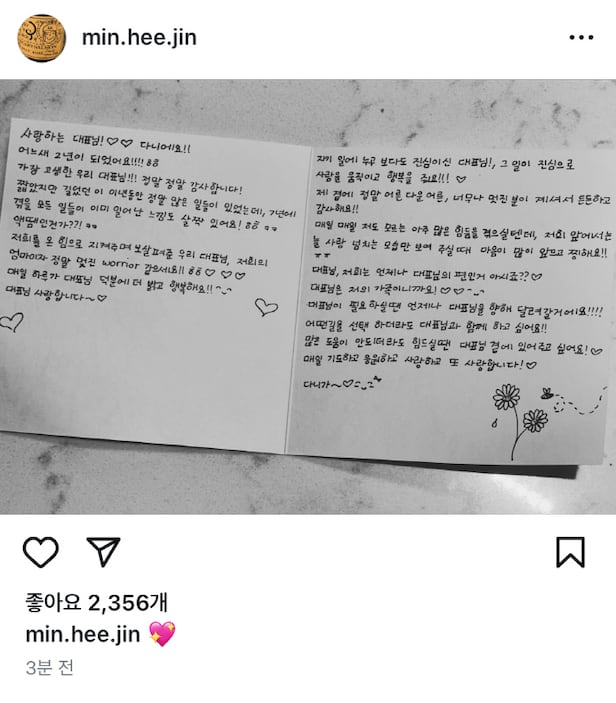 min.hee.jin
사랑하는 대표님!♡♡ 다니에요!!
어느새 2년이 되었어요!!!! ㅎㅎ
가장 고생한 우리 대표님!!! 정말 정말 감사합니다!
짧았지만 길었던 이 이년동안 정말 많은 일들이 있었는데, 7년에
겪을 모든 일들이 이미 일어난 느낌도 살짝 있어요! ㅎㅎ ㅋㅋ
액땜인건가??! ㅋㅋ
저희를 온 힘으로 지켜주며 보살펴준 우리 대표님, 저희의
엄마이자 정말 멋진 worrior 같으세요!! ㅎㅎ ♡ ♡ ♡
매일 하루가 대표님 덕분에 더 밝고 행복해요!! ^_^
대표님 사랑합니다~♡
자기 일에 누구 보다도 진심이신 대표님!, 그 일이 진심으로
사람을 움직이고 행복을 줘요!!! ♡
제 곁에 정말 어른 다운 어른, 너무나 멋진 분이 계셔서 든든하고
감사해요!!
매일 매일 저도 모르는 아주 많은 힘듦을 겪으실텐데, 저희 앞에서는
늘 사랑 넘치는 모습만 보여 주실때 마음이 많이 아프고 찡해요!!
ㅠㅠ
대표님, 저희는 언제나 대표님의 편인거 아시죠??♡
대표님은 저의 가족이니까요! ♡♡^_^
대표님이 필요하실땐 언제나 대표님을 향해 달려갈거에요!!!!
어떤길을 선택 하더라도 대표님과 함께 하고 싶어요!!
많은 도움이 안되더라도 힘드실땐 대표님 곁에 있어주고 싶어요!♡
매일 기도하고 응원하고 사랑하고 또 사랑합니다!♡
다니가~♡
좋아요 2,356개
min.hee.jin 💖
3분 전